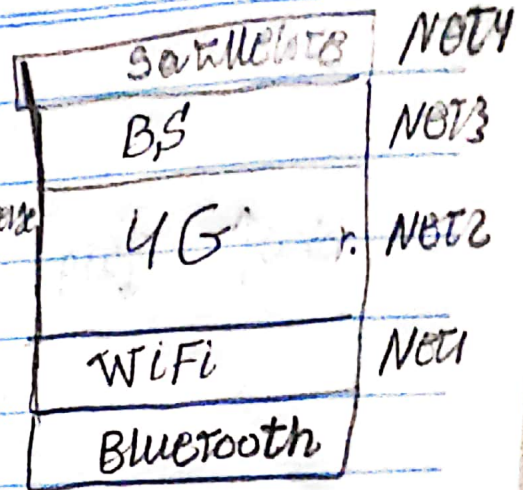 Satellite NET4
BS NET3
4G NET2
WiFi NET1
Bluetooth